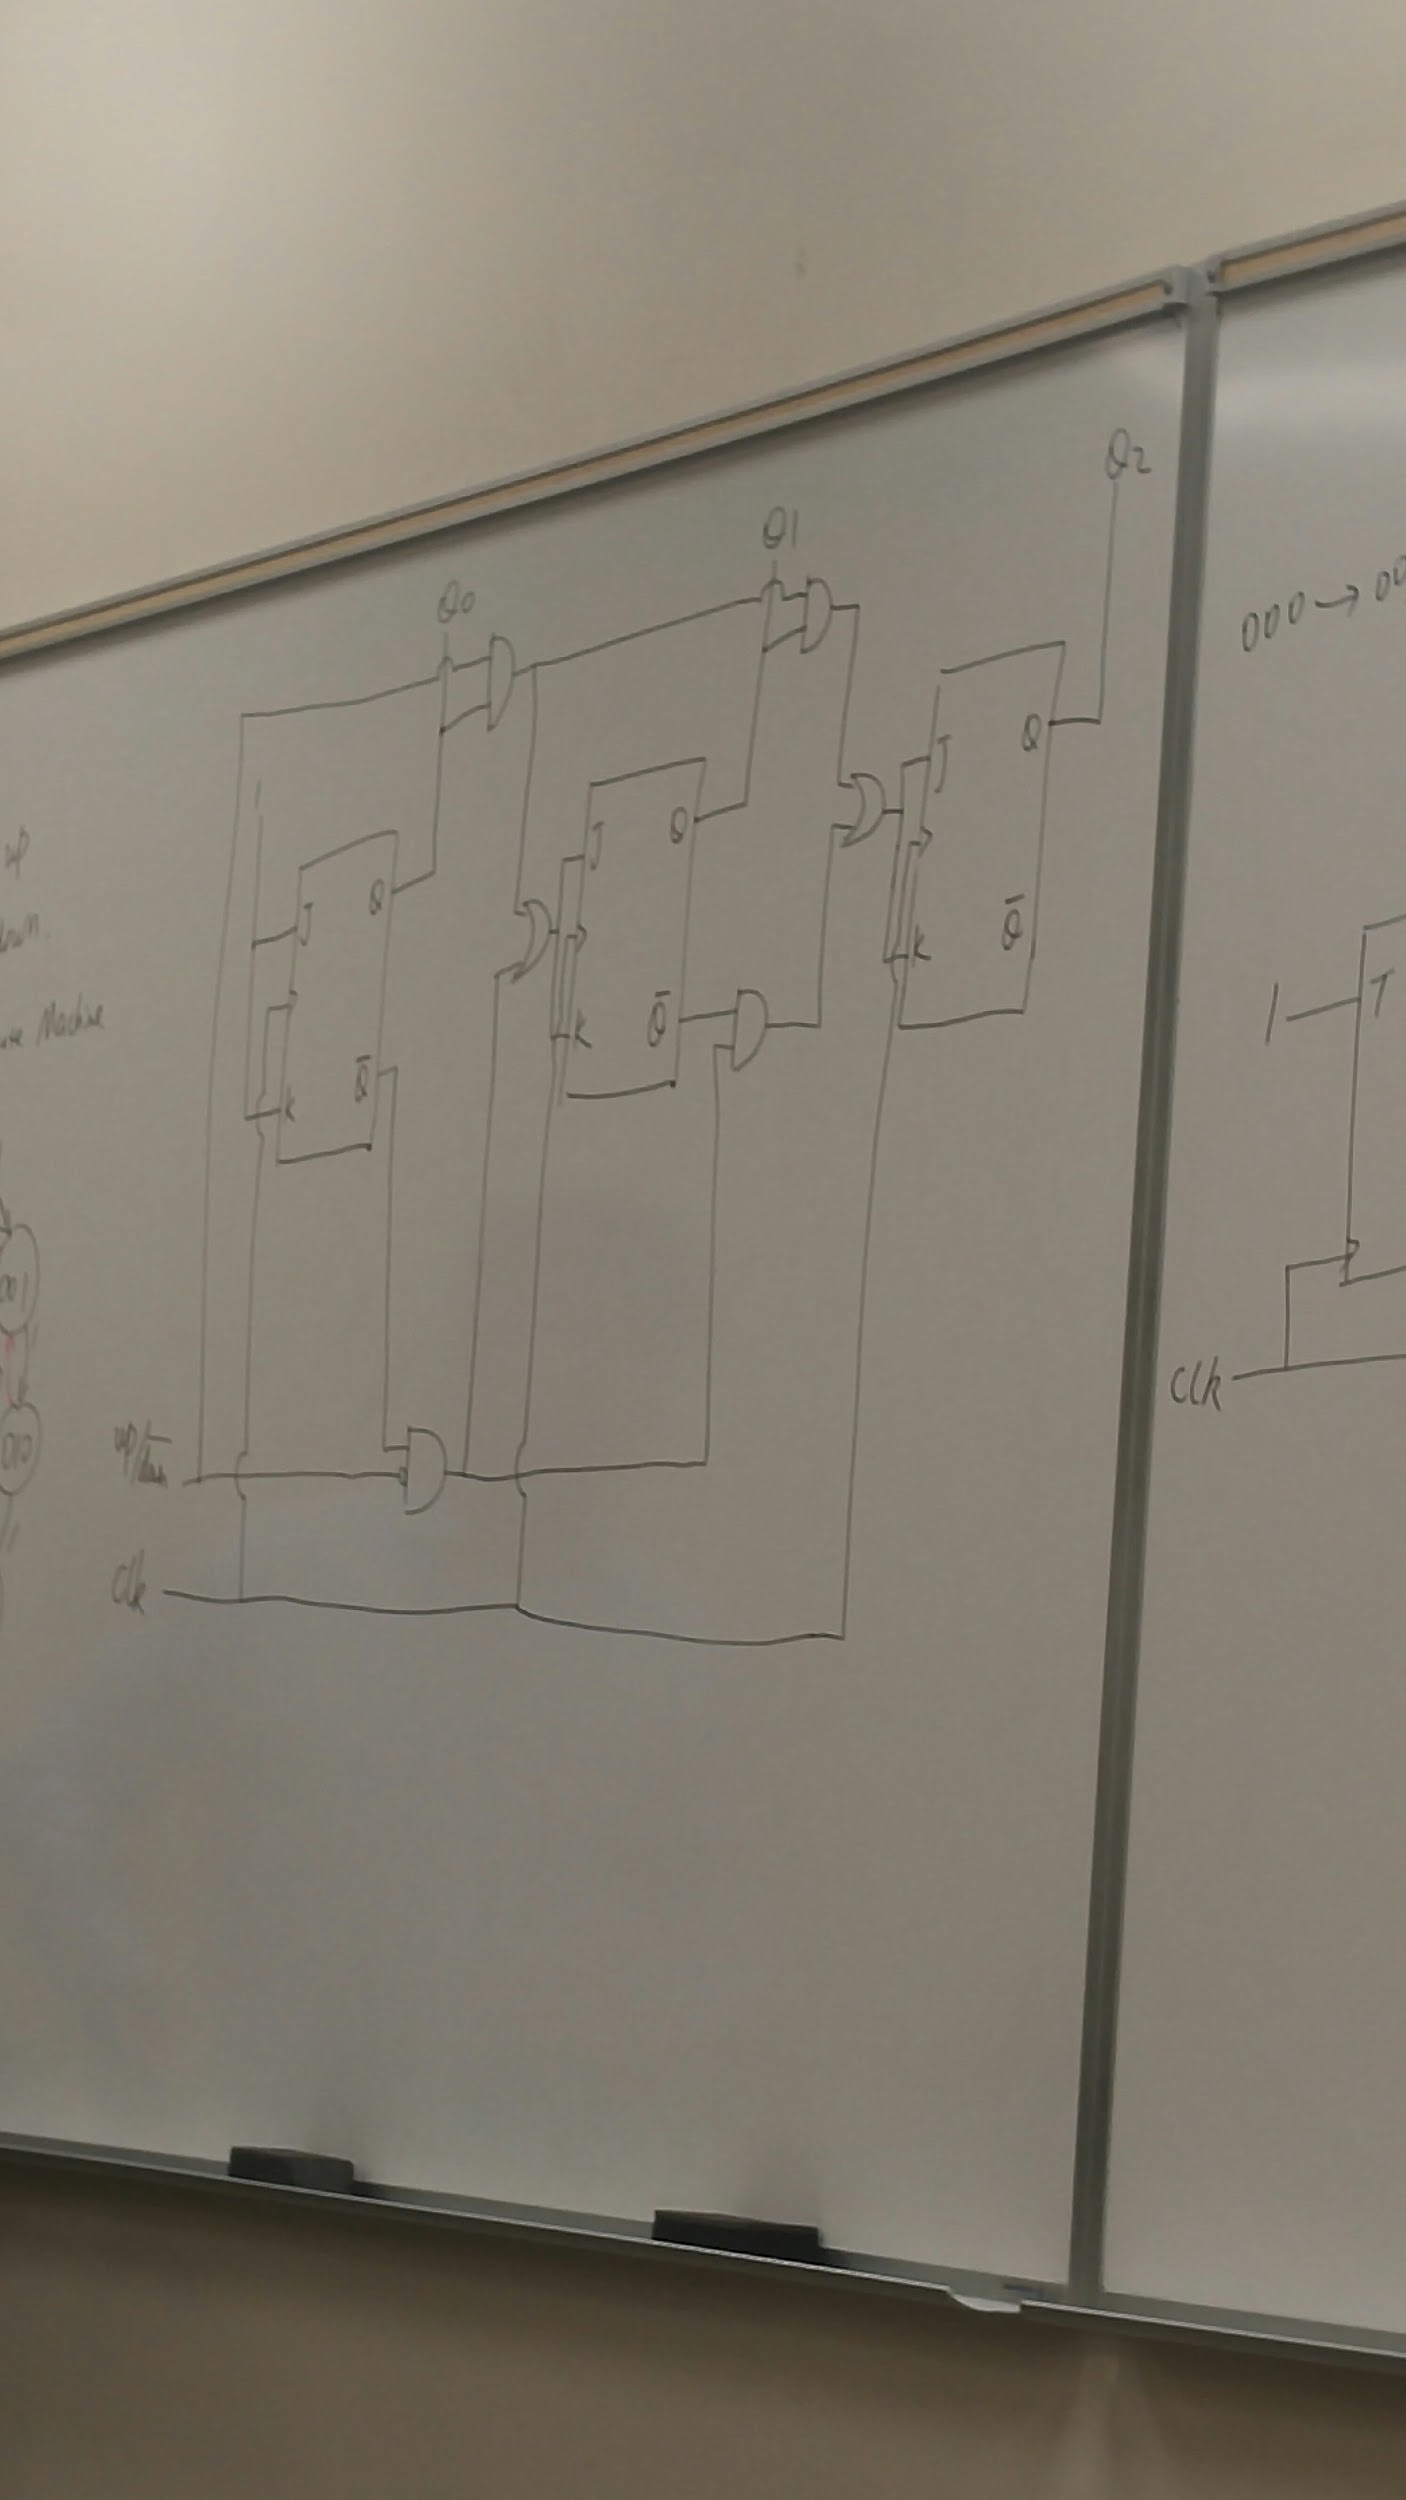 up
Machine
001
010
Q0
Q1
Q2
J
Q
K
Q̅
J
Q
K
Q̅
J
Q
K
Q̅
up/
Clk
000 → 00
1
T
Clk